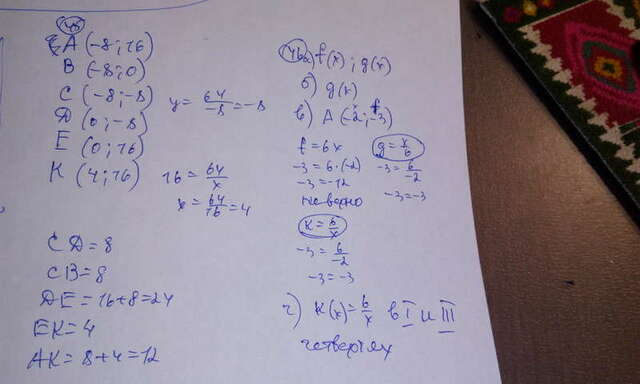 45
A (-8; 16)
B (-8; 0)
C (-8; -8) y = 64/-8 = -8
D (0; -8)
E (0; 16)
K (4; 16) 16 = 64/x
x = 64/16 = 4
CD = 8
CB = 8
DE = 16+8=24
EK = 4
AK = 8+4=12
46 а) f(x); g(x)
б) g(x)
в) A (-2; -3)
f = 6x
-3 = 6·(-2)
-3 = -12
неверно
g = x/6
-3 = 6/-2
-3 = -3
K = 6/x
-3 = 6/-2
-3 = -3
г) K(x) = 6/x в I и III
четвертях